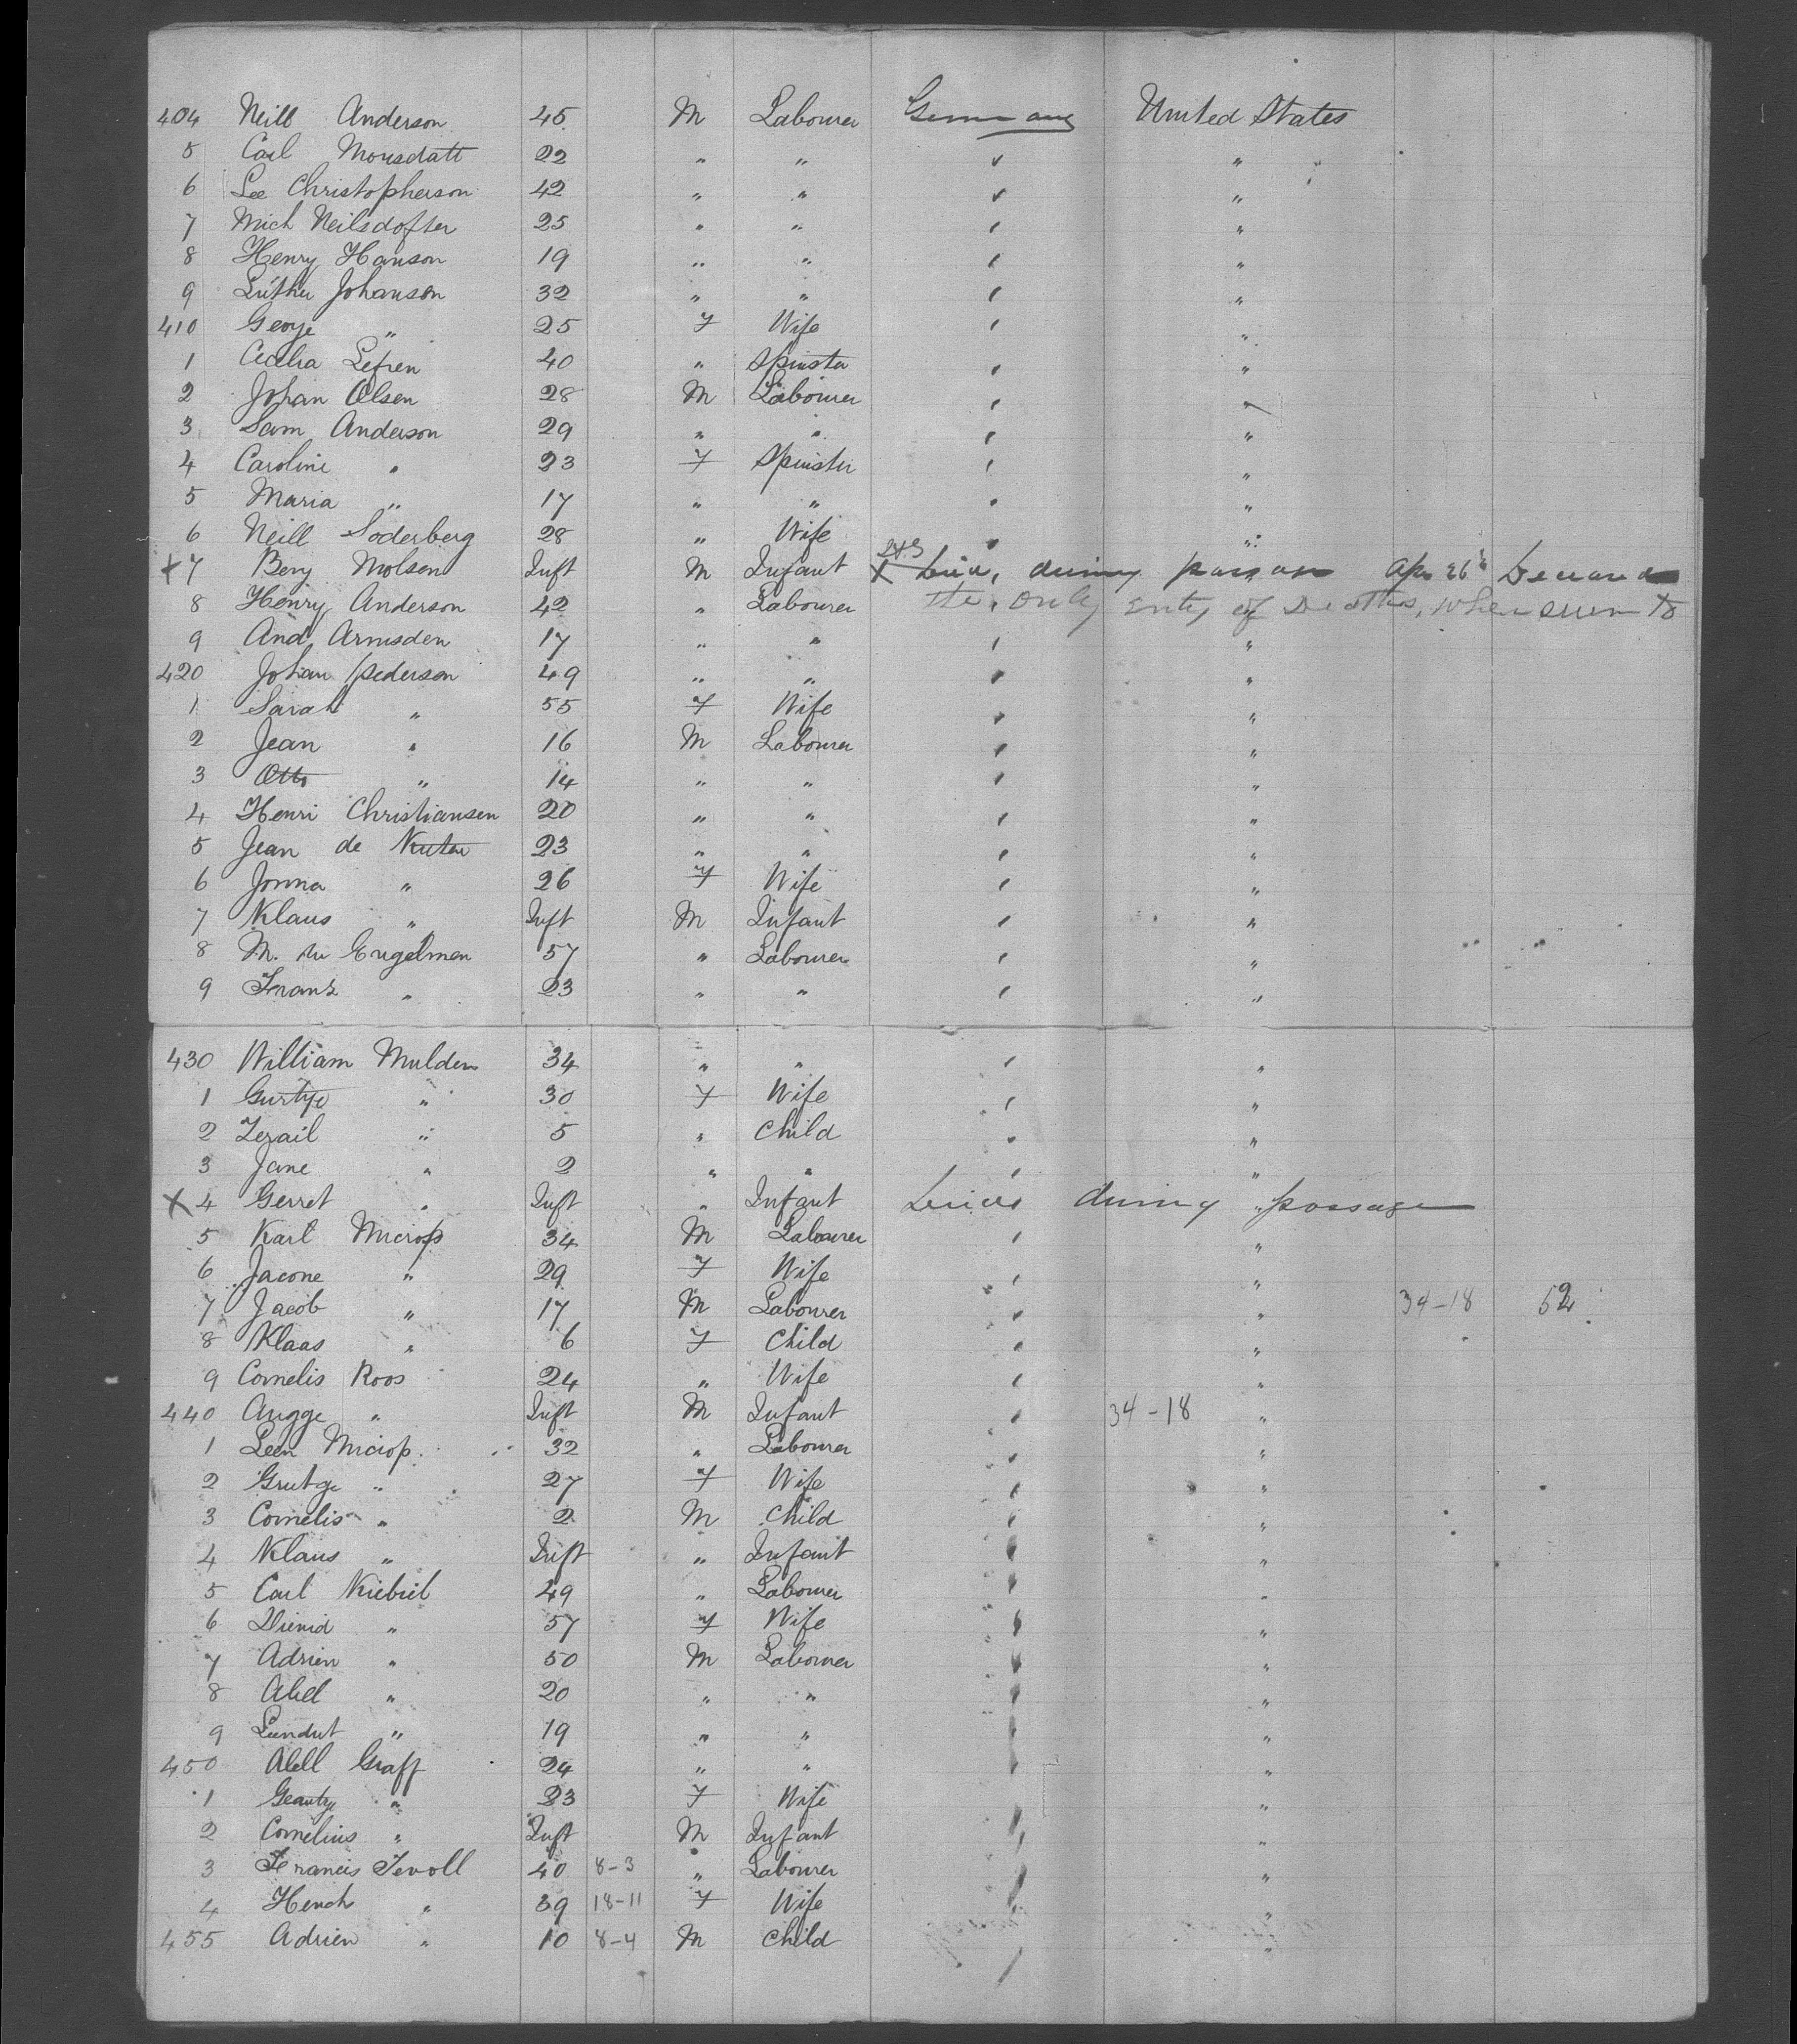 404 Neill Anderson 45 M Labourer Germany United States
5 Carl Monsdatt 22 " " " "
6 Lee Christopherson 42 " " " "
7 Mich Neilsdofter 25 " " " "
8 Henry Hanson 19 " " " "
9 Luther Johanson 32 " " " "
410 George " 25 F Wife " "
1 Cecelia Lefren 40 " Spinster " "
2 Johan Olsen 28 M Labourer " "
3 Sam Anderson 29 " " " "
4 Caroline " 23 F Spinster " "
5 Maria " 17 " " " "
6 Neill Soderberg 28 " Wife " "
X 7 Benj Molsen Inft M Infant X Died, during passage Apr 26
8 Henry Anderson 42 " Labourer the only entry of Deaths, when sworn to
9 And Arnusden 17 " " " "
420 Johan Pederson 49 " " " "
1 Sarah " 55 F Wife " "
2 Jean " 16 M Labourer " "
3 Otto " 14 " " " "
4 Henri Christiansen 20 " " " "
5 Jean de Kuter 23 " " " "
6 Jonna " 26 F Wife " "
7 Klaus " Inft M Infant " "
8 M. Engelmen 57 " Labourer " "
9 Franz " 23 " " " "
430 William Mulder 34 " " " "
1 Gurtye " 30 F Wife " "
2 Zerail " 5 " Child " "
3 Jane " 2 " " " "
X 4 Gerret " Inft " Infant Died during passage
5 Karl Microp 34 M Labourer " "
6 Jacone " 29 F Wife " "
7 Jacob " 17 M Labourer " " 34-18 52
8 Klaas " 6 F Child " "
9 Cornelis Roos 24 " Wife " "
440 Angge " Inft M Infant " 34-18 "
1 Leen Microp 32 " Labourer " "
2 Grutge " 27 F Wife " "
3 Cornelis " 2 M Child " "
4 Klaus " Inft " Infant " "
5 Carl Kiebiel 49 " Labourer " "
6 Dienid " 57 F Wife " "
7 Adrien " 50 M Labourer " "
8 Abel " 20 " " " "
9 Lundut " 19 " " " "
450 Abell Graff 24 " " " "
1 Geautye " 23 F Wife " "
2 Cornelius " Inft M Infant " "
3 Francis Tevoll 40 8-3 " Labourer " "
4 Hench " 39 18-11 F Wife " "
455 Adrien " 10 8-4 M Child " "